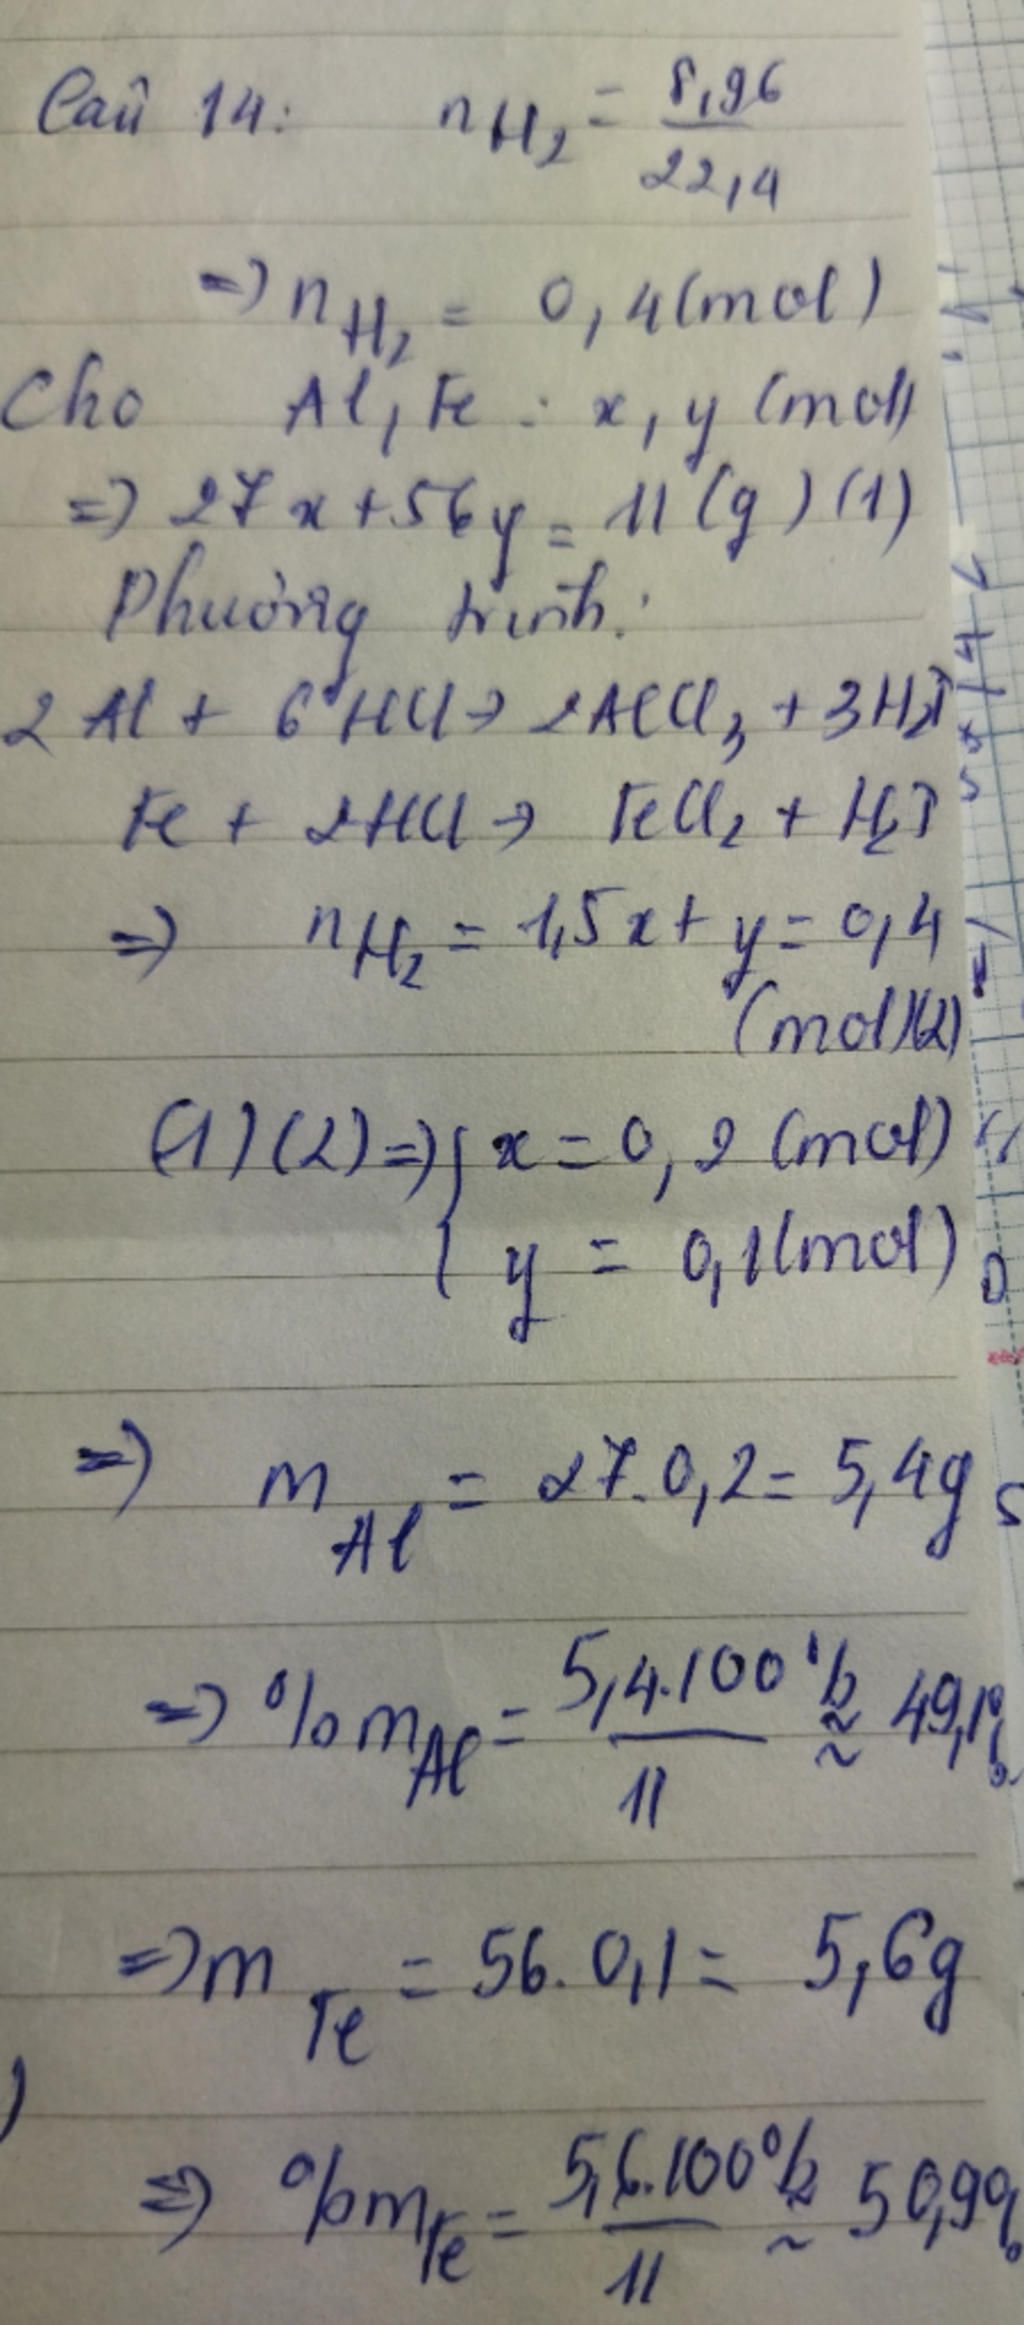 Câu 14: nH₂ = 8,96 / 22,4
=> nH₂ = 0,4 (mol)
Cho Al, Fe : x, y (mol)
=> 27x + 56y = 11 (g) (1)
Phương trình:
2Al + 6HCl → 2AlCl₃ + 3H₂↑
Fe + 2HCl → FeCl₂ + H₂↑
=> nH₂ = 1,5x + y = 0,4
(mol) (2)
(1) (2) => { x = 0,2 (mol)
{ y = 0,1 (mol)
=> mAl = 27.0,2 = 5,4g
=> %mAl = 5,4.100% / 11 ≈ 49,1%
=> mFe = 56.0,1 = 5,6g
=> %mFe = 5,6.100% / 11 ≈ 50,9%